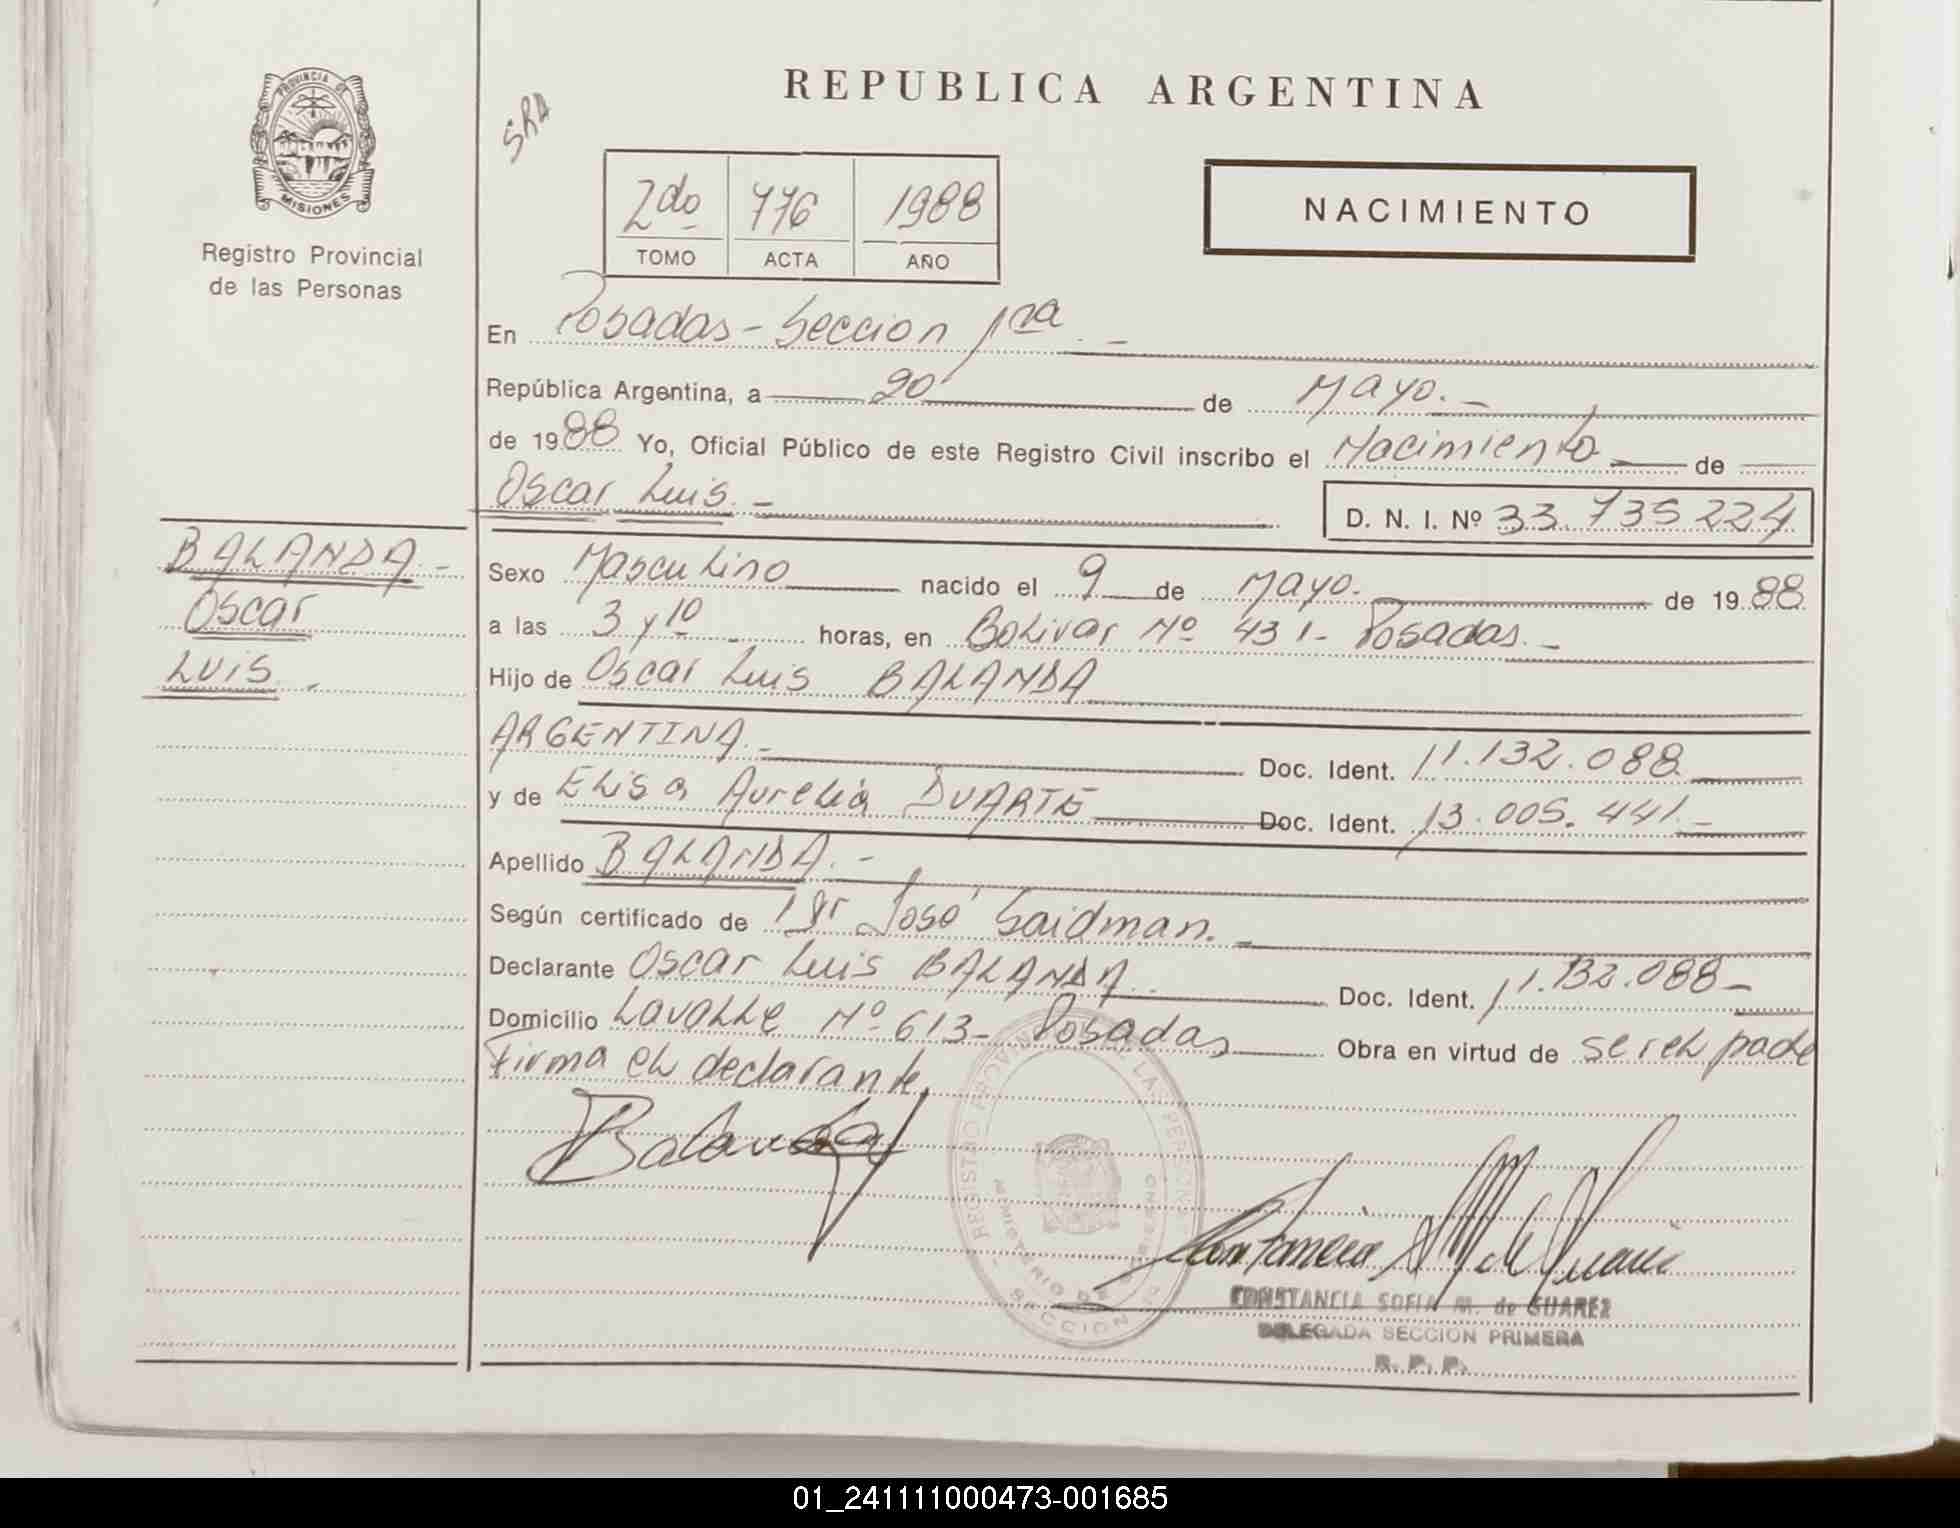 REPUBLICA ARGENTINA
SRA
PROVINCIA DE
MISIONES
Registro Provincial
de las Personas
2do 776 1988
TOMO ACTA AÑO
NACIMIENTO
En Posadas - Seccion 1ra. -
República Argentina, a 20 de Mayo. -
de 1988 Yo, Oficial Público de este Registro Civil inscribo el Nacimiento de
Oscar Luis. - D. N. I. Nº 33.735224
BALANDA. -
Oscar
Luis. -
Sexo Masculino nacido el 9 de Mayo. de 1988
a las 3 y 10 - horas, en Bolivar Nº 431- Posadas. -
Hijo de Oscar Luis BALANDA
ARGENTINA. - Doc. Ident. 11.132.088
y de Elisa Aurelia DUARTE Doc. Ident. 13.005.441. -
Apellido BALANDA. -
Según certificado de Dr José Saidman. -
Declarante Oscar Luis BALANDA. Doc. Ident. 11.132.088-
Domicilio Lavalle Nº 613- Posadas Obra en virtud de ser el padre
Firma el declarante.
Balanda
REGISTRO PROVINCIAL DE LAS PERSONAS
MINISTERIO DE GOBIERNO
SECCION
CONSTANCIA SOFIA M. de SUAREZ
DELEGADA SECCION PRIMERA
R. P. P.
01_241111000473-001685